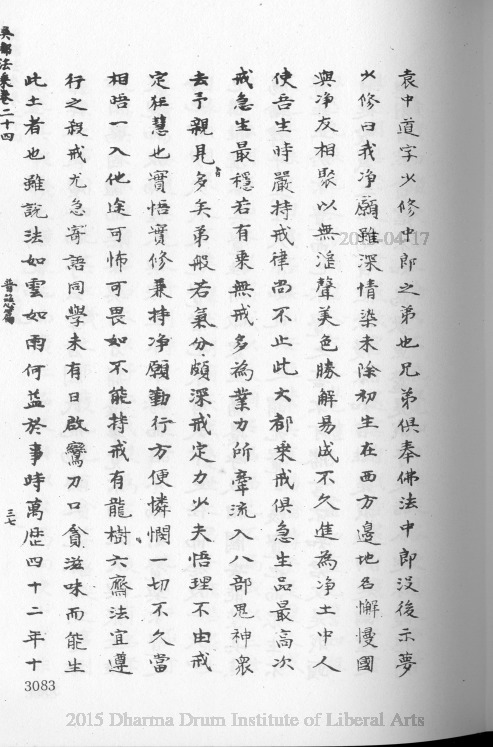 袁中道字少修中郎之弟也兄弟俱奉佛法中郎沒後示夢
少修曰我淨願雖深情染未除初生在西方邊地名懈慢國
與淨友相聚以無滛聲美色勝解易成不久進為淨土中人
使吾生時嚴持戒律尚不止此大都乘戒俱急生品最高次
戒急生最穩若有乘無戒多為業力所牽流入八部鬼神眾
去予親見多矣弟般若氣分頗深戒定力少夫悟理不由戒
定狂慧也實悟實修兼持淨願勤行方便憐憫一切不久當
相晤一入他途可怖可畏如不能持戒有龍樹六齋法宜遵
行之殺戒尤急寄語同學未有日啟鸞刀口貪滋味而能生
此土者也雖說法如雲如雨何益於事時萬歷四十二年十
吳都法乘卷二十四
音慈篇
三七
3083
2015-04-17
2015 Dharma Drum Institute of Liberal Arts